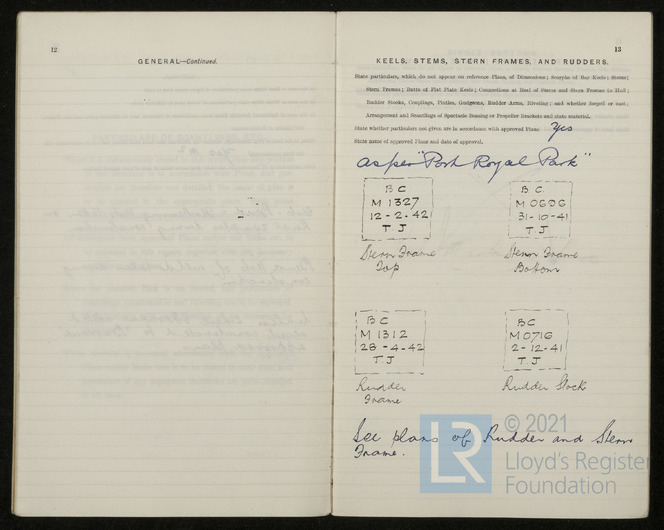 12
GENERAL—Continued.
13
KEELS, STEMS, STERN FRAMES, AND RUDDERS.
State particulars, which do not appear on reference Plans, of Dimensions; Scarphs of Bar Keels; Stems;
Stern Frames; Butts of Flat Plate Keels; Connections at Heel of Stems and Stern Frames to Hull;
Rudder Stocks, Couplings, Pintles, Gudgeons, Rudder Arms, Riveting; and whether forged or cast;
Arrangement and Scantlings of Spectacle Bossing or Propeller Brackets and state material.
State whether particulars not given are in accordance with approved Plans Yes
State name of approved Plans and date of approval.
As per "Port Royal Park"
B C
M 1327
12-2-42
T J
Stern Frame
Top
B C
M 0696
31-10-41
T J
Stern Frame
Bottom
B C
M 1312
28-4-42
T J
Rudder
Frame
B C
M 0716
2-12-41
T J
Rudder Stock
See plans of Rudder and Stern
Frame.
LR
© 2021
Lloyd's Register
Foundation